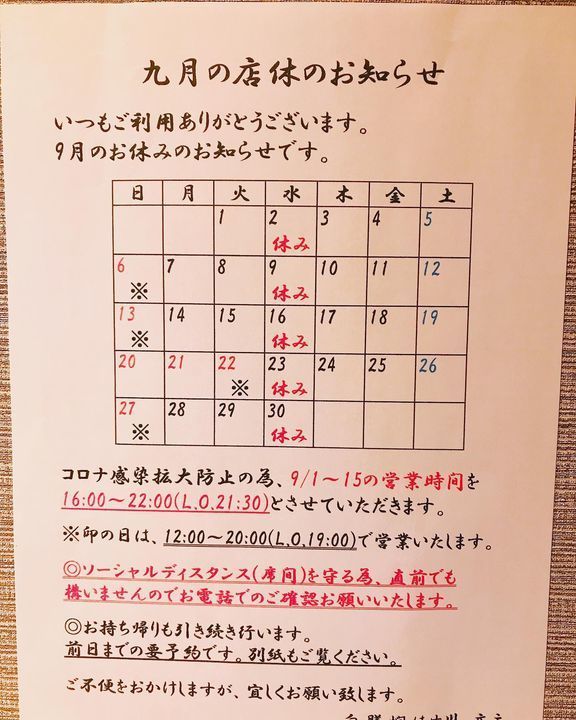 九月の店休のお知らせ
いつもご利用ありがとうございます。
9月のお休みのお知らせです。
日 月 火 水 木 金 土
1 2 3 4 5
休み
6 7 8 9 10 11 12
※ 休み
13 14 15 16 17 18 19
※ 休み
20 21 22 23 24 25 26
※ 休み
27 28 29 30
※ 休み
コロナ感染拡大防止の為、9/1～15の営業時間を
16:00～22:00(L.O.21:30)とさせていただきます。
※印の日は、12:00～20:00(L.O.19:00)で営業いたします。
◎ソーシャルディスタンス(席間)を守る為、直前でも
構いませんのでお電話でのご確認お願いいたします。
◎お持ち帰りも引き続き行います。
前日までの要予約です。別紙もご覧ください。
ご不便をおかけしますが、宜しくお願い致します。